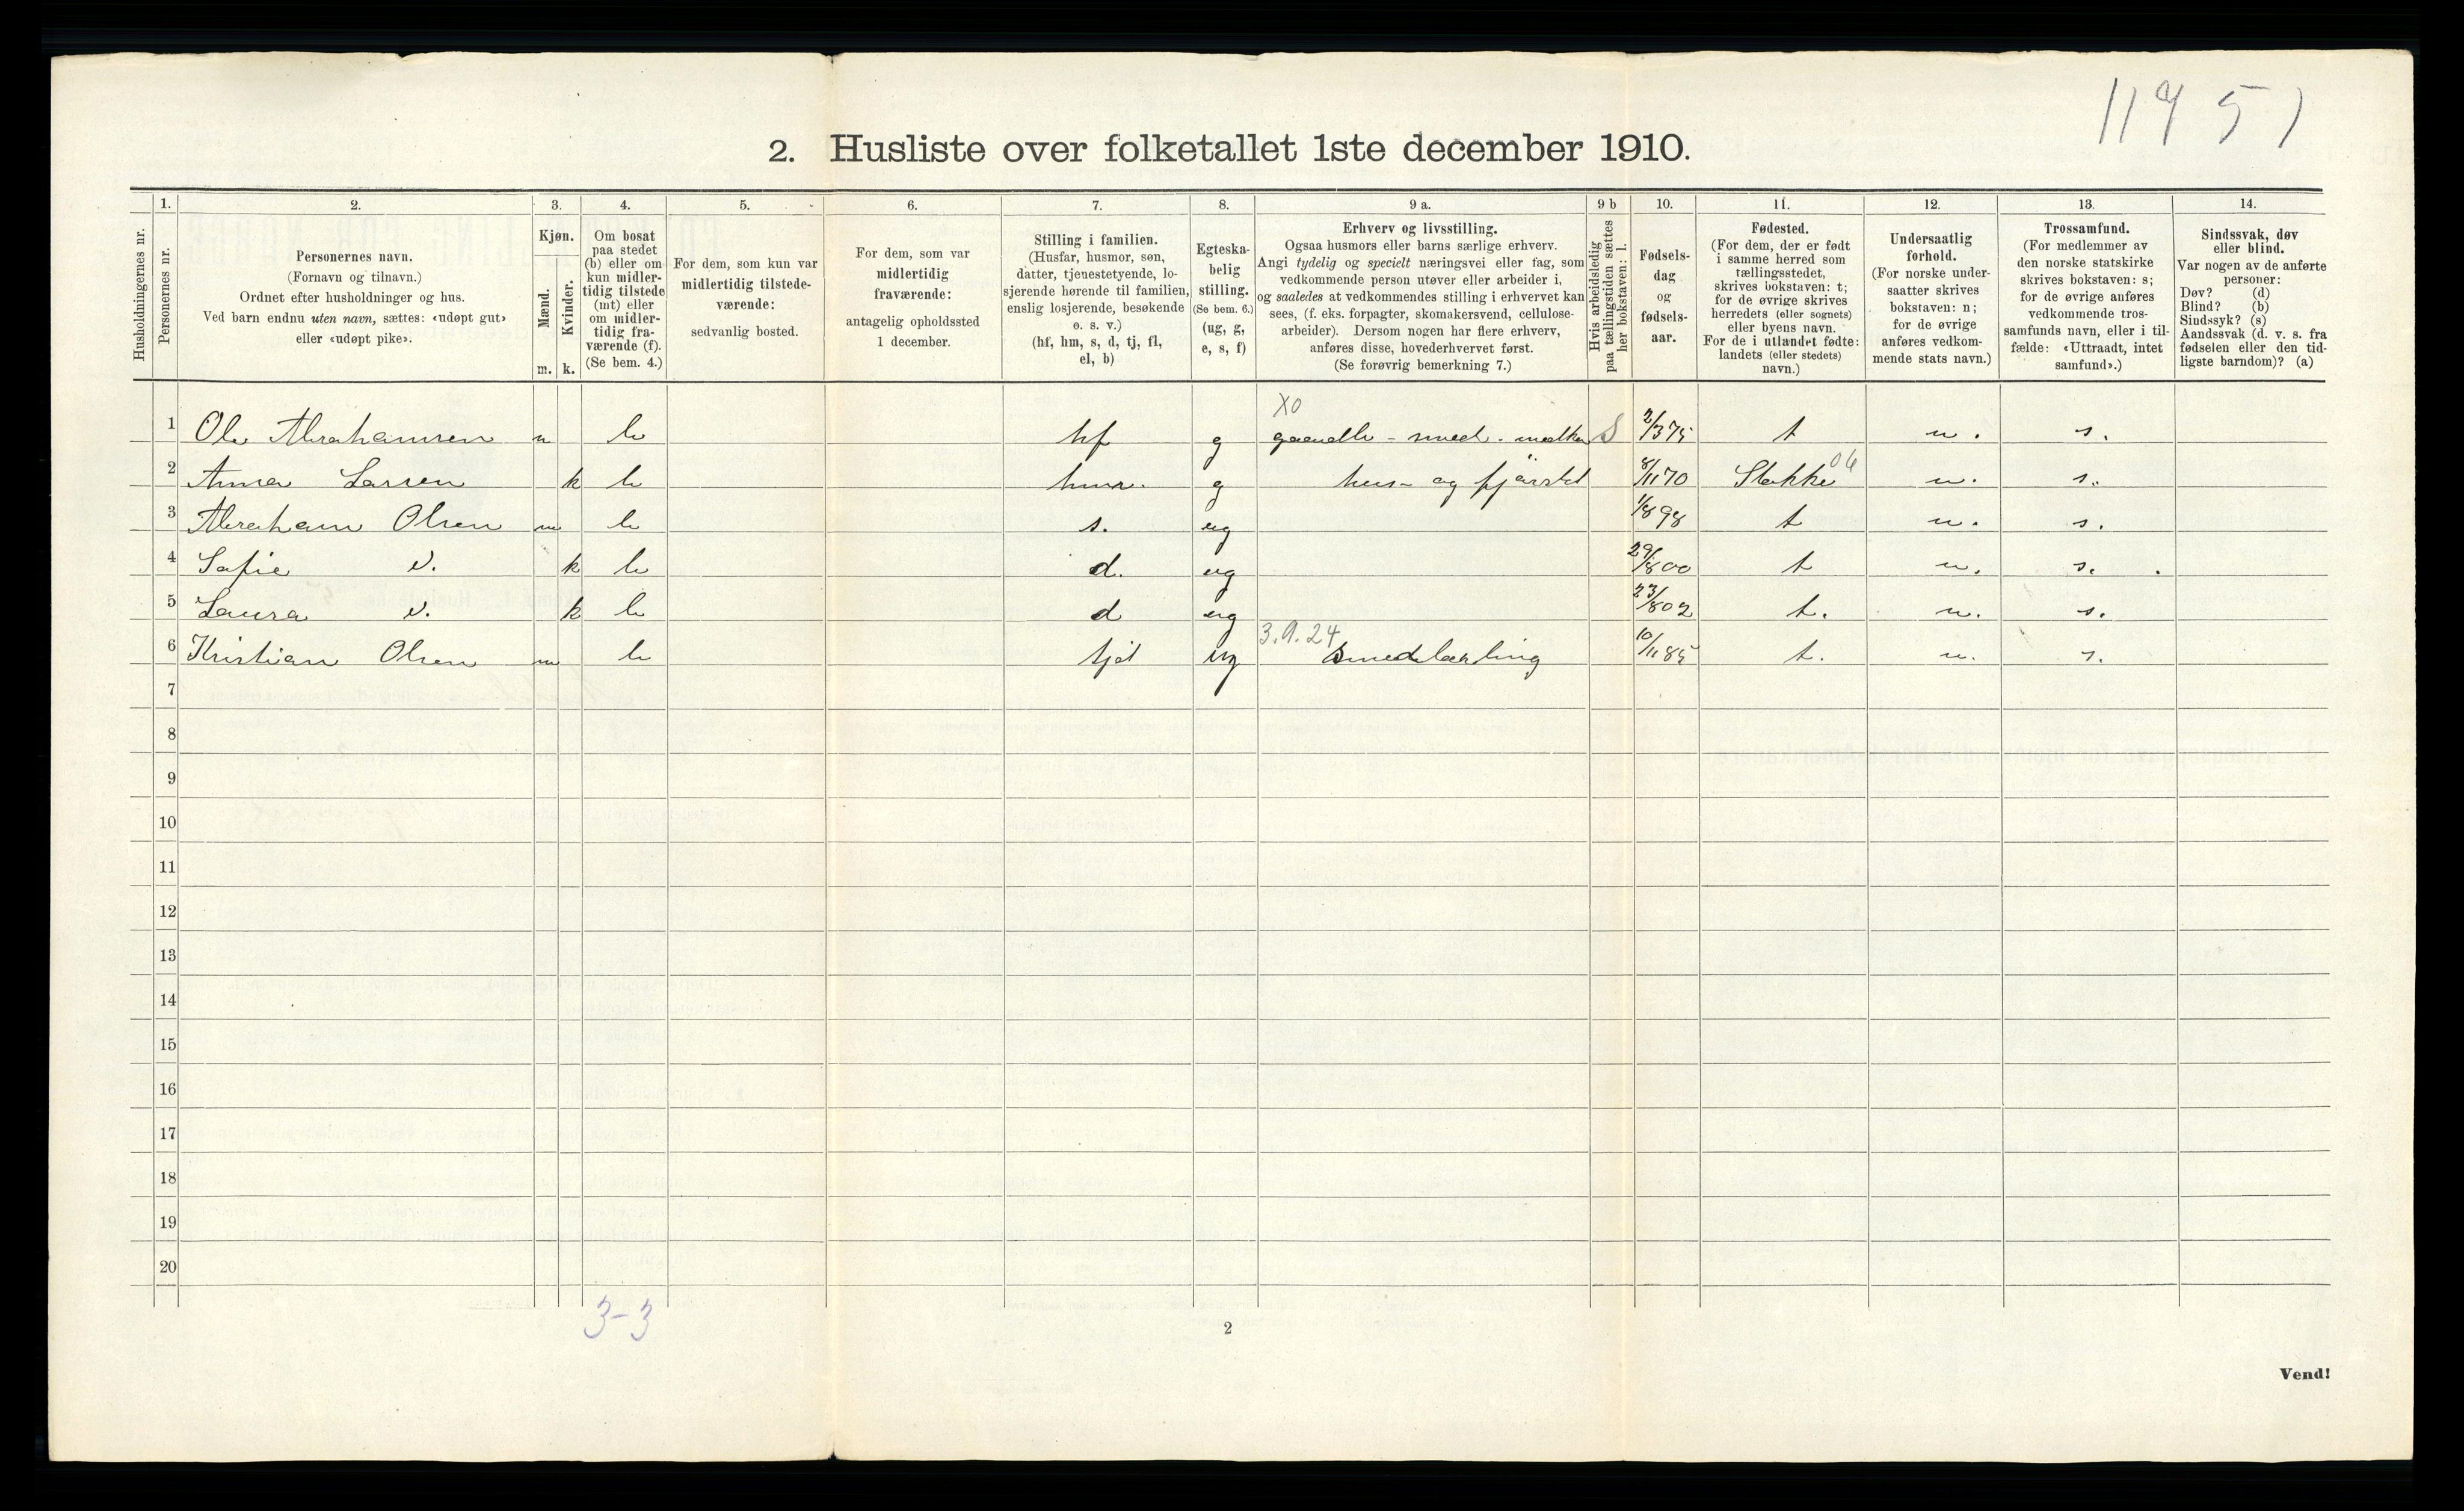 1195 1
2. Husliste over folketallet 1ste december 1910.
Husholdningernes nr.
1.
Personernes nr.
2.
Personernes navn.
(Fornavn og tilnavn.)
Ordnet efter husholdninger og hus.
Ved barn endnu uten navn, sættes: «udøpt gut»
eller «udøpt pike».
3.
Kjøn.
Mænd.
Kvinder.
m. k.
4.
Om bosat
paa stedet
(b) eller om
kun midler-
tidig tilstede
(mt) eller
om midler-
tidig fra-
værende (f).
(Se bem. 4.)
5.
For dem, som kun var
midlertidig tilstede-
værende:
sedvanlig bosted.
6.
For dem, som var
midlertidig
fraværende:
antagelig opholdssted
1 december.
7.
Stilling i familien.
(Husfar, husmor, søn,
datter, tjenestetyende, lo-
sjerende hørende til familien,
enslig losjerende, besøkende
o. s. v.)
(hf, hm, s, d, tj, fl,
el, b)
8.
Egteska-
belig
stilling.
(Se bem. 6.)
(ug, g,
e, s, f)
9 a.
Erhverv og livsstilling.
Ogsaa husmors eller barns særlige erhverv.
Angi tydelig og specielt næringsvei eller fag, som
vedkommende person utøver eller arbeider i,
og saaledes at vedkommendes stilling i erhvervet kan
sees, (f. eks. forpagter, skomakersvend, cellulose-
arbeider). Dersom nogen har flere erhverv,
anføres disse, hovederhvervet først.
(Se forøvrig bemerkning 7.)
9 b
Hvis arbeidsledig
paa tællingstiden sættes
her bokstaven: l.
10.
Fødsels-
dag
og
fødsels-
aar.
11.
Fødested.
(For dem, der er født
i samme herred som
tællingsstedet,
skrives bokstaven: t;
for de øvrige skrives
herredets (eller sognets)
eller byens navn.
For de i utlandet fødte:
landets (eller stedets)
navn.)
12.
Undersaatlig
forhold.
(For norske under-
saatter skrives
bokstaven: n;
for de øvrige
anføres vedkom-
mende stats navn.)
13.
Trossamfund.
(For medlemmer av
den norske statskirke
skrives bokstaven: s;
for de øvrige anføres
vedkommende tros-
samfunds navn, eller i til-
fælde: «Uttraadt, intet
samfund».)
14.
Sindssvak, døv
eller blind.
Var nogen av de anførte
personer:
Døv? (d)
Blind? (b)
Sindssyk? (s)
Aandssvak (d. v. s. fra
fødselen eller den tid-
ligste barndom)? (a)
X0
1 Ole Abrahamsen m b hf g smed S 2/3 75 t n. s.
2 Anna Larsen k b hm. g hus- og fjørstel 8/11 70 Stokke 06 n. s.
3 Abraham Olsen m b s. ug 1/8 98 t n. s.
4 Sofie k b d. ug 29/8 00 t n. s.
5 Laura k b d ug 23/8 02 t. n. s.
3.9.24
6 Kristian Olsen m b tj ug Smedlærling 10/11 85 t. n. s.
7
8
9
10
11
12
13
14
15
16
17
18
19
20
3-3
2
Vend!